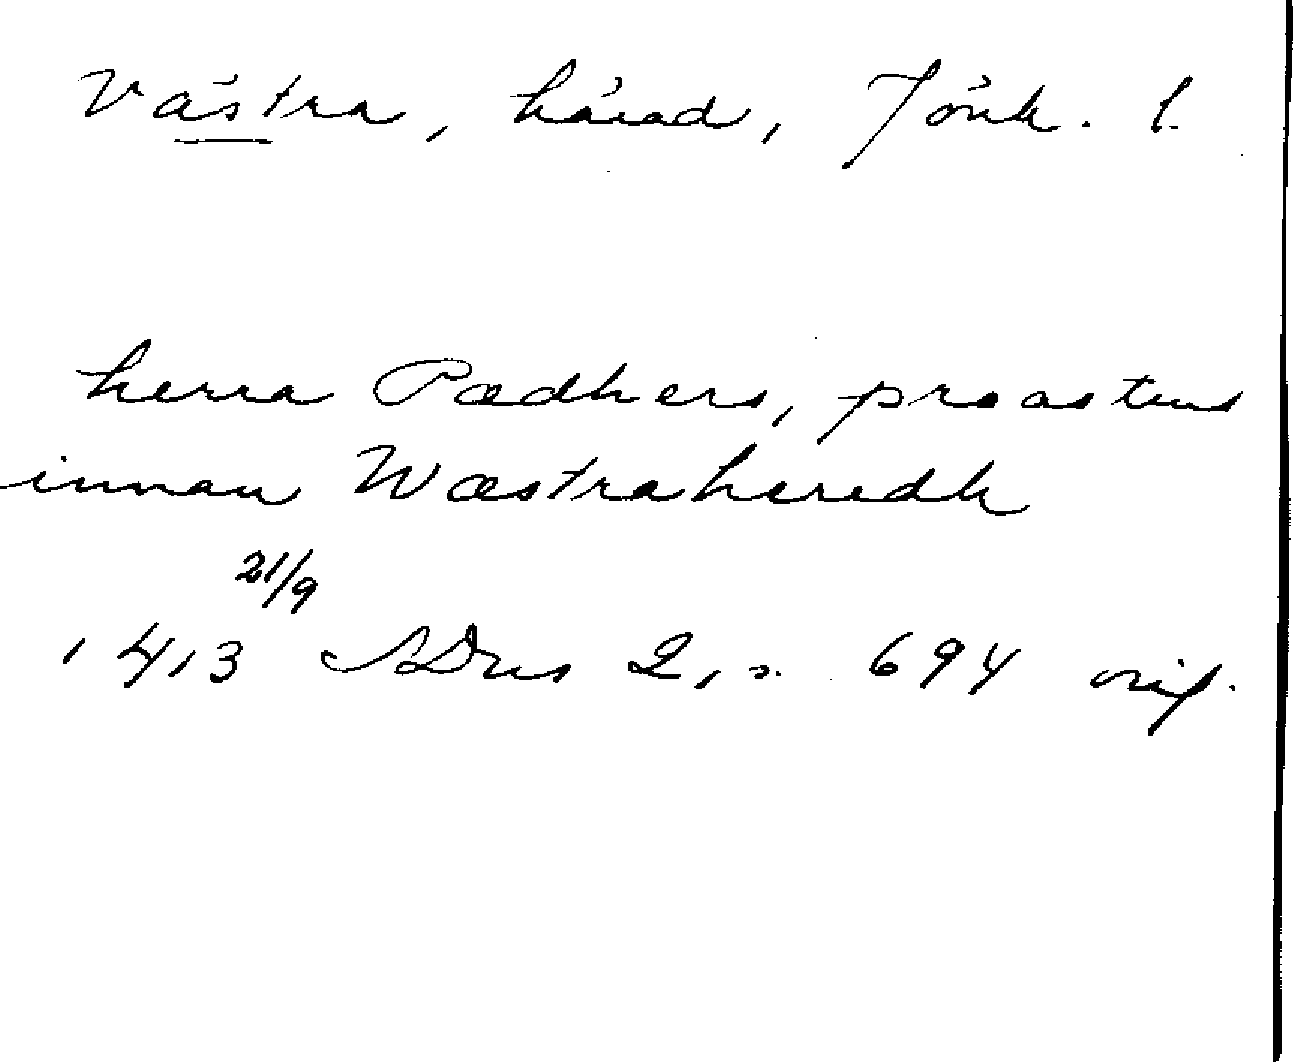 Västra, härad, Jönk. l.
herra Pædhers, proastens
innan Wæstraheredh
21/9
1413 SDns 2, s. 694 orig.